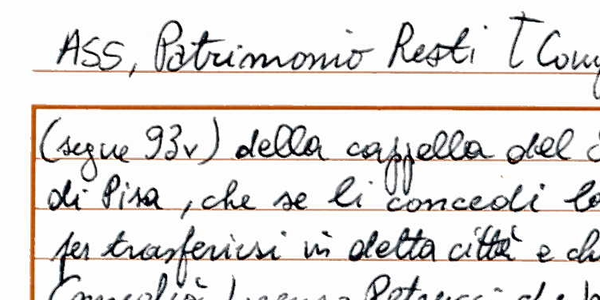 ASS, Patrimonio Resti
(segue 93v) della cappella del
di Pisa, che se li concedi
per trasferirsi in detta città e